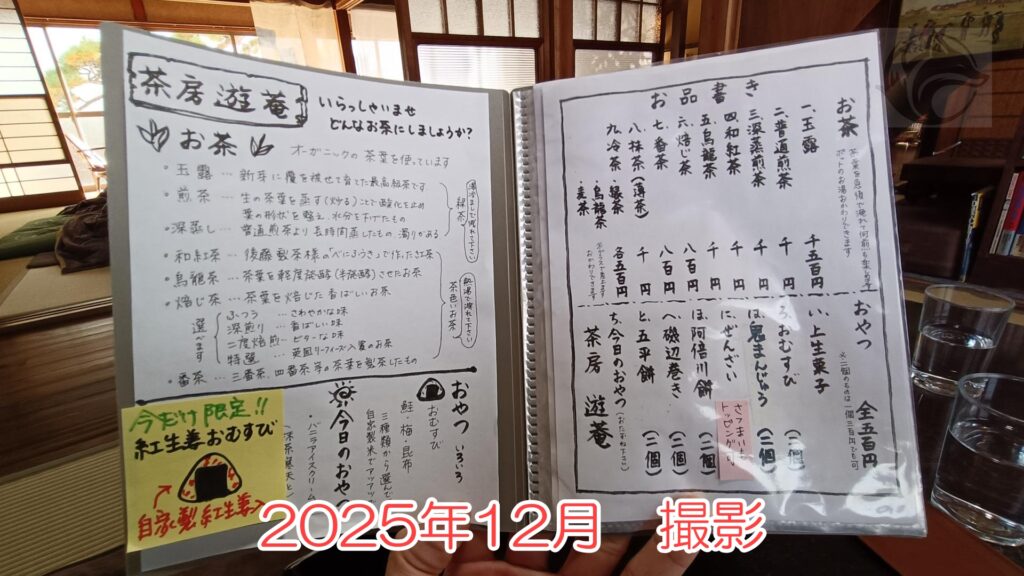 茶房遊菴
いらっしゃいませ
どんなお茶にしましょうか?
お茶
オーガニックの茶葉を使っています
・玉露…新芽に覆を被せて育てた最高級茶です
・煎茶…生の茶葉を蒸す(炒る)ことで酸化を止め
葉の形状を整え、水分を下げたもの
・深蒸し…普通煎茶より長時間蒸したもの 濁りがある
緑茶
湯冷ましで淹れて下さい
・和紅茶…後藤製茶様の「べにふうき」で作った紅茶
・烏龍茶…茶葉を軽度発酵(半発酵)させたお茶
・焙じ茶…茶葉を焙じた香ばしいお茶
選べます
ふつう…さわやかな味
深煎り…香ばしい味
二度焙煎…ビターな味
特選…英国リーフィーズ入賞のお茶
・番茶…三番茶、四番茶等の茶葉を製茶したもの
茶色いお茶
熱湯で淹れて下さい
おやつ いろいろ
おむすび
鮭・梅・昆布
三種類から選んで
今日のおや
・バニラアイスクリーム
今だけ限定!!
紅生姜おむすび
自家製紅生姜入
お品書き
お茶
一、玉露 千五百円
二、普通煎茶 千円
三、深蒸煎茶 千円
四、和紅茶 千円
五、烏龍茶 千円
六、焙じ茶 八百円
七、番茶 八百円
八、抹茶(薄茶) 千円
九、冷茶 ・緑茶 ・烏龍茶 ・麦茶 各五百円
おやつ 全五百円
い、上生菓子
ろ、おむすび (二個)
は、鬼まんじゅう (二個)
に、ぜんざい
さつまいもトッピング
ほ、阿倍川餅 (二個)
へ、磯辺巻き (二個)
と、五平餅 (二個)
ち、今日のおやつ (おたずね下さい)
茶房 遊菴
2025年12月 撮影